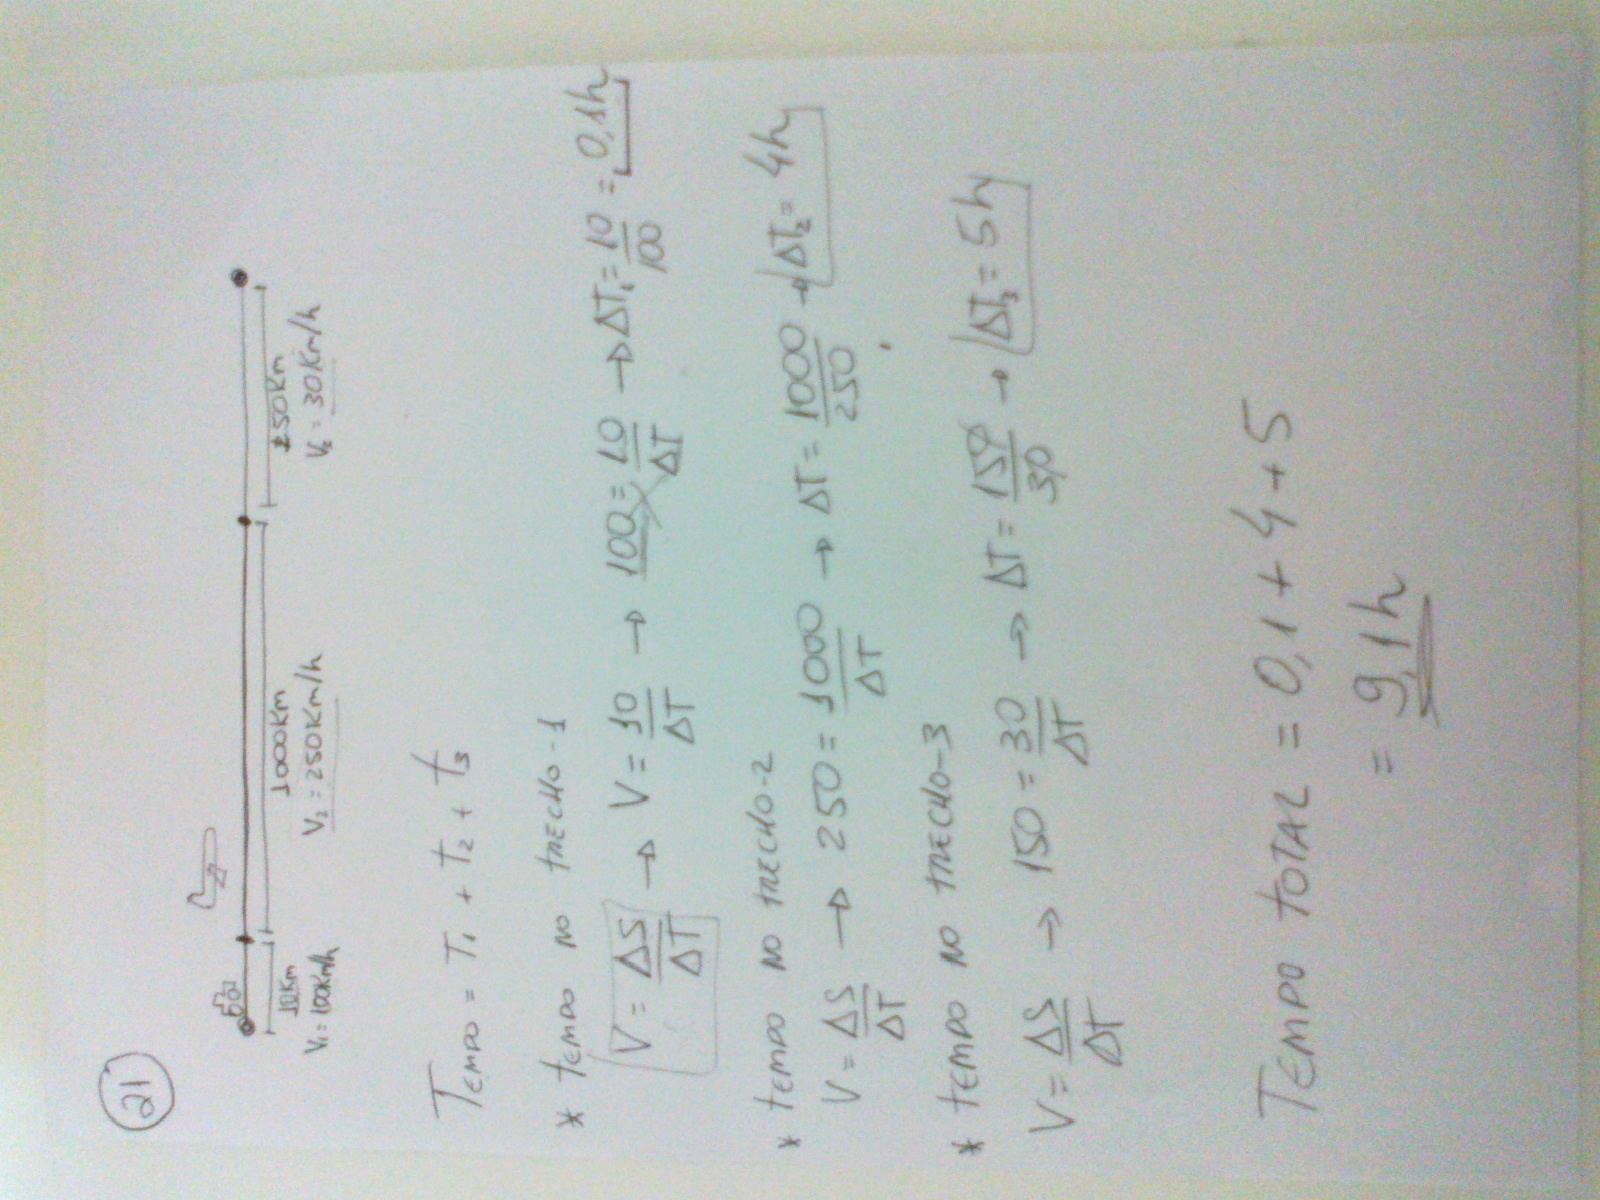 21
10Km 1000Km 150Km
V₁ = 100Km/h V₂ = 250Km/h V₂ = 30Km/h
TEMPO = T₁ + t₂ + t₃
* tEMPO NO tRECHO-1
V = ΔS/ΔT → V = 10/ΔT → 100 = 10/ΔT → ΔT₁ = 10/100 = 0,1h
* tEMPO NO tRECHO-2
V = ΔS/ΔT → 250 = 1000/ΔT → ΔT = 1000/250 → ΔT₂ = 4h
* tEMPO NO tRECHO-3
V = ΔS/ΔT → 150 = 30/ΔT → ΔT = 150/30 → ΔT₃ = 5h
TEMPO tOTAL = 0,1 + 4 + 5
= 9,1h